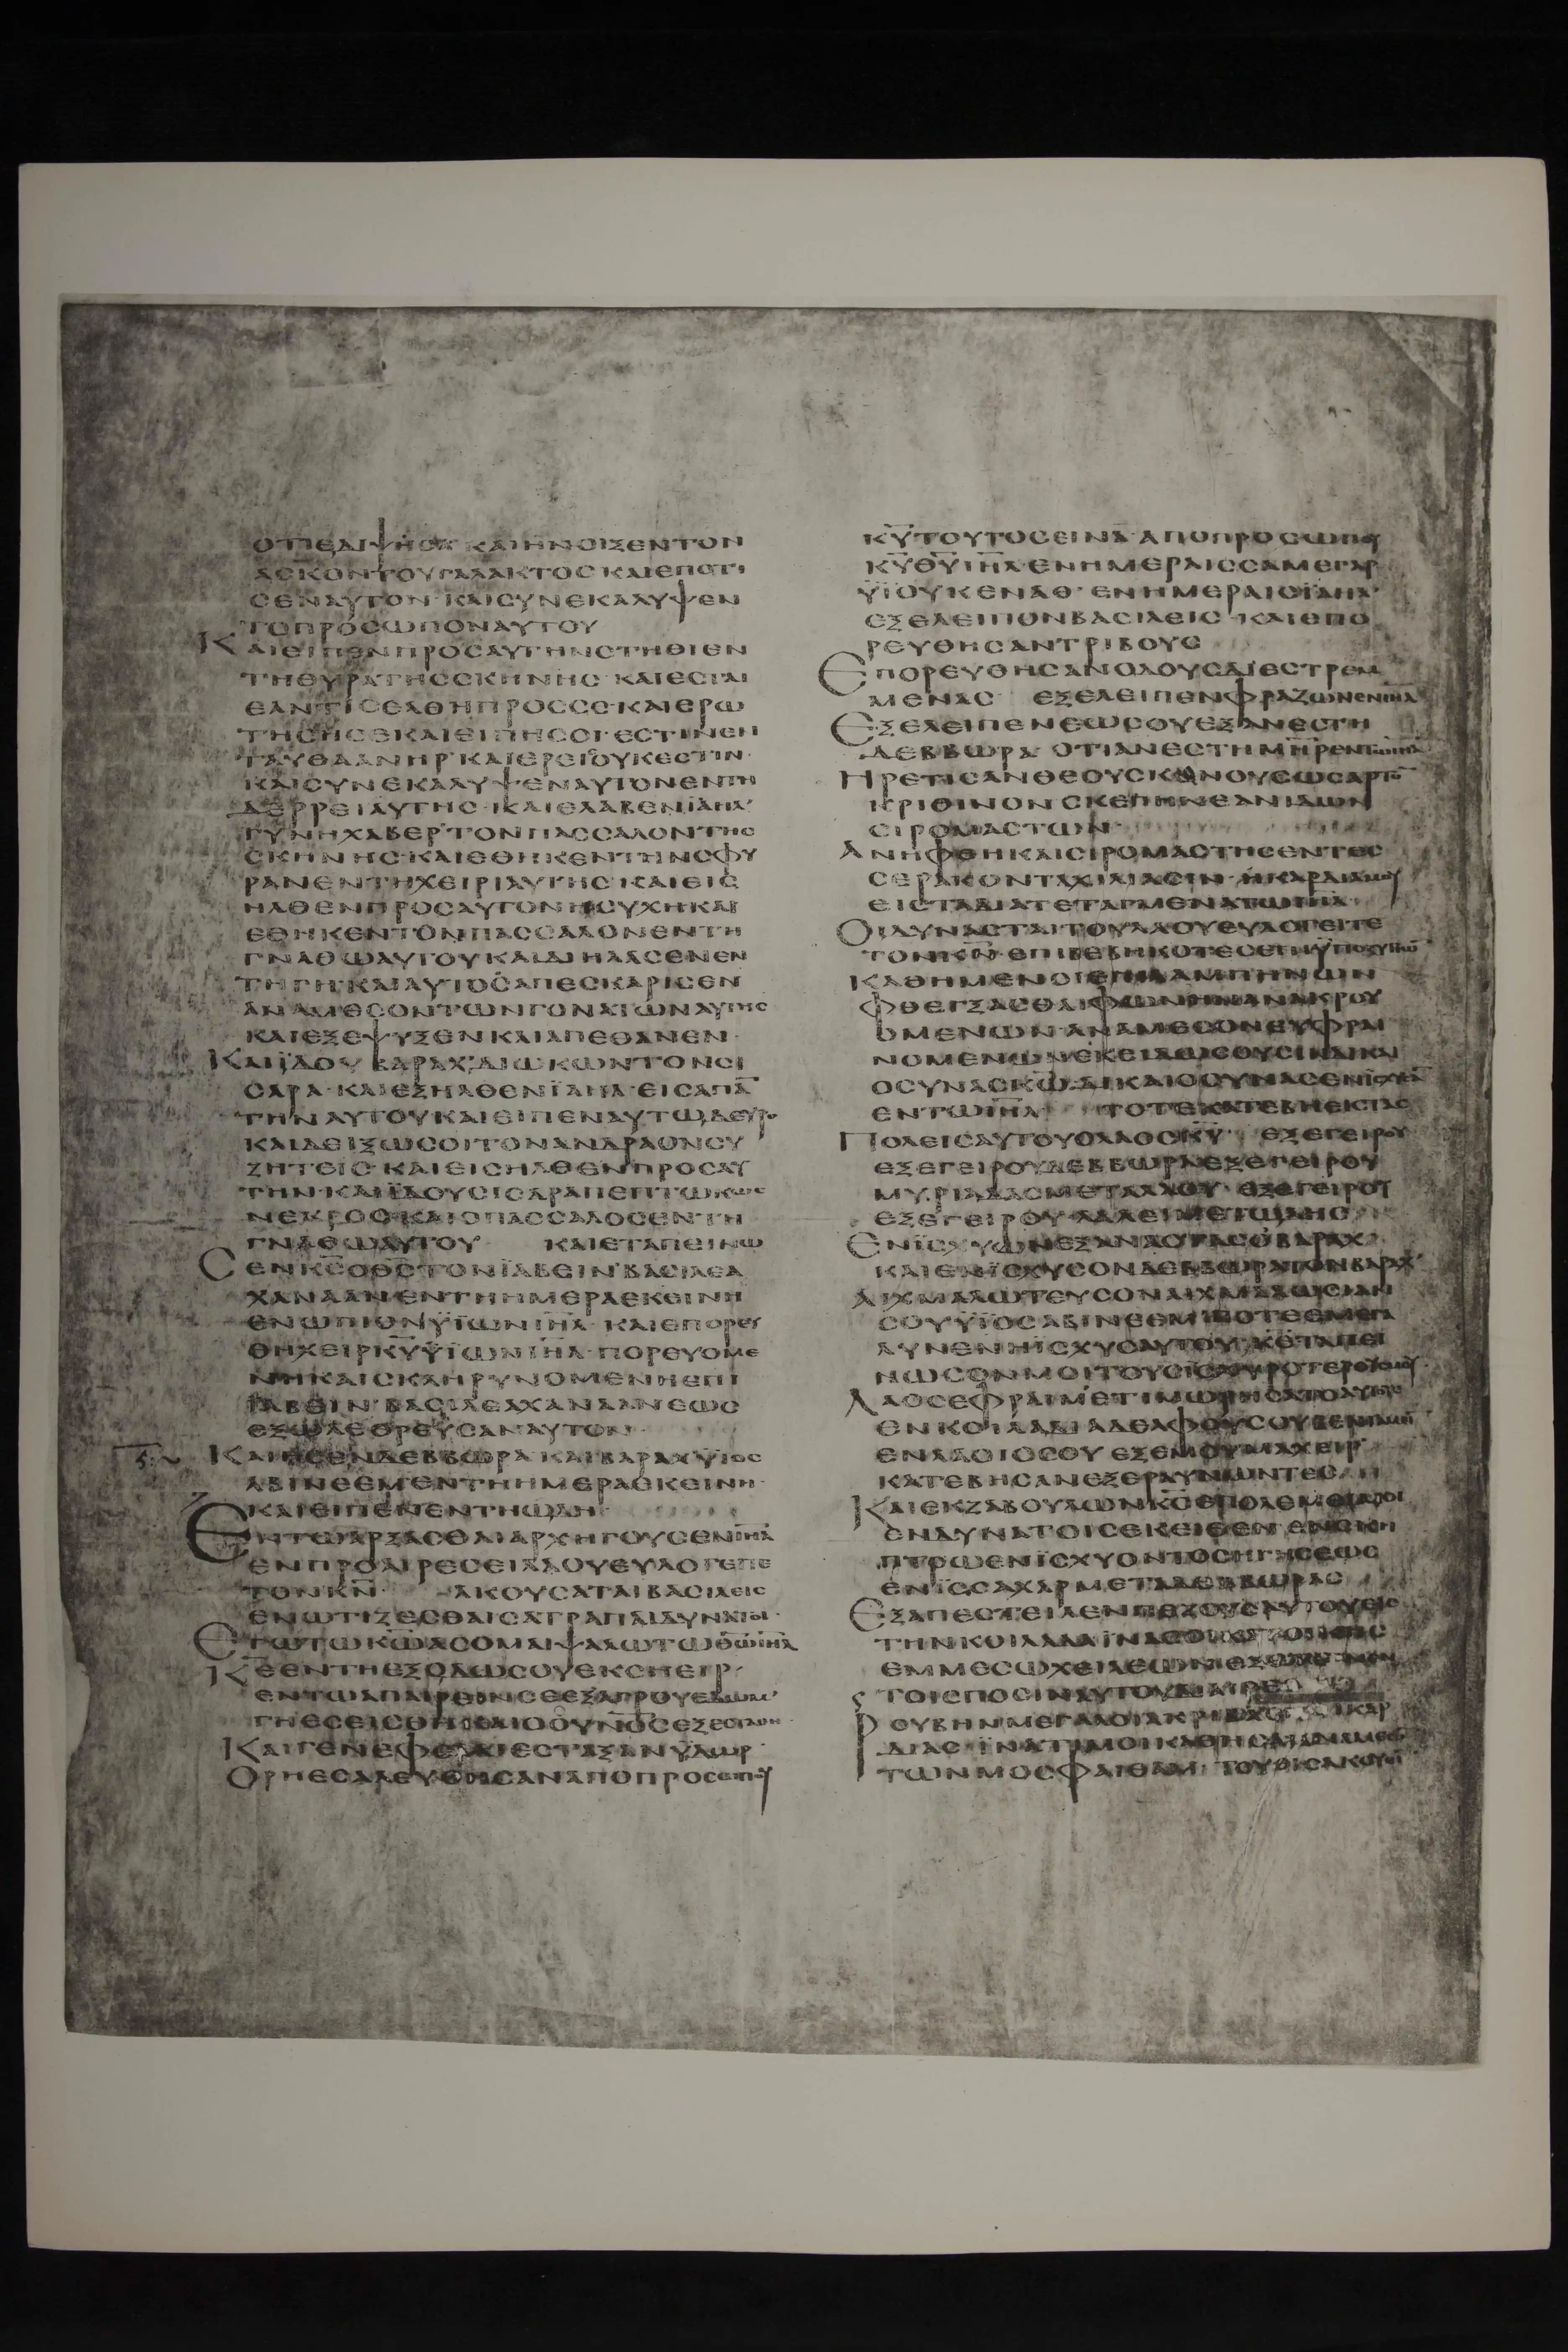 ΟΤΙΕΔΙΨΗΣΑ ΚΑΙΗΝΟΙΞΕΝΤΟΝ
ΑΣΚΟΝΤΟΥΓΑΛΑΚΤΟΣΚΑΙΕΠΟΤΙ
ΣΕΝΑΥΤΟΝ·ΚΑΙΣΥΝΕΚΑΛΥΨΕΝ
ΤΟΠΡΟΣΩΠΟΝΑΥΤΟΥ
ΚΑΙΕΙΠΕΝΠΡΟΣΑΥΤΗΝΣΤΗΘΙΕΝ
ΤΗΘΥΡΑΤΗΣΣΚΗΝΗΣ·ΚΑΙΕΣΤΑΙ
ΕΑΝΤΙΣΕΛΘΗΠΡΟΣΣΕ·ΚΑΙΕΡΩ
ΤΗΣΗΣΕΚΑΙΕΙΠΗΣΟΙ·ΕΣΤΙΝΕΝ
ΤΑΥΘΑΑΝΗΡ·ΚΑΙΕΡΕΙΣΟΥΚΕΣΤΙΝ·
ΚΑΙΣΥΝΕΚΑΛΥΨΕΝΑΥΤΟΝΕΝΤΗ
ΔΕΡΡΕΙΑΥΤΗΣ·ΚΑΙΕΛΑΒΕΝΪΑΗΛ·
ΓΥΝΗΧΑΒΕΡ·ΤΟΝΠΑΣΣΑΛΟΝΤΗΣ
ΣΚΗΝΗΣ·ΚΑΙΕΘΗΚΕΝΤΗΝΣΦΥ
ΡΑΝΕΝΤΗΧΕΙΡΙΑΥΤΗΣ·ΚΑΙΕΙΣ
ΗΛΘΕΝΠΡΟΣΑΥΤΟΝΗΣΥΧΗΚΑΙ
ΕΘΗΚΕΝΤΟΝΠΑΣΣΑΛΟΝΕΝΤΗ
ΓΝΑΘΩΑΥΤΟΥΚΑΙΔΙΗΛΑΣΕΝΕΝ
ΤΗΓΗ·ΚΑΙΑΥΤΟΣΑΠΕΣΚΑΡΙΣΕΝ
ΑΝΑΜΕΣΟΝΤΩΝΓΟΝΑΤΩΝΑΥΤΗΣ
ΚΑΙΕΞΕΨΥΞΕΝΚΑΙΑΠΕΘΑΝΕΝ·
ΚΑΙΪΔΟΥΒΑΡΑΧ·ΔΙΩΚΩΝΤΟΝΣΙ
ΣΑΡΑ·ΚΑΙΕΞΗΛΘΕΝΪΑΗΛ·ΕΙΣΑΠΑ̅
ΤΗΝΑΥΤΟΥΚΑΙΕΙΠΕΝΑΥΤΩΔΕΥΡΟ
ΚΑΙΔΕΙΞΩΣΟΙΤΟΝΑΝΔΡΑΟΝΣΥ
ΖΗΤΕΙΣ·ΚΑΙΕΙΣΗΛΘΕΝΠΡΟΣΑΥ
ΤΗΝ·ΚΑΙΪΔΟΥΣΙΣΑΡΑΠΕΠΤΩΚΩΣ
ΝΕΚΡΟΣ·ΚΑΙΟΠΑΣΣΑΛΟΣΕΝΤΗ
ΓΝΑΘΩΑΥΤΟΥ ΚΑΙΕΤΑΠΕΙΝΩ
ΣΕΝΚ̅Σ̅Ο̅Θ̅Σ̅ΤΟΝΪΑΒΕΙΝ·ΒΑΣΙΛΕΑ
ΧΑΝΑΑΝΕΝΤΗΗΜΕΡΑΕΚΕΙΝΗ
ΕΝΩΠΙΟΝΫΪΩΝΙ̅Η̅Λ̅·ΚΑΙΕΠΟΡΕΥ
ΘΗΧΕΙΡΚ̅Υ̅ΫΪΩΝΙ̅Η̅Λ̅·ΠΟΡΕΥΟΜΕ
ΝΗΚΑΙΣΚΛΗΡΥΝΟΜΕΝΗΕΠΙ
ΪΑΒΕΙΝ·ΒΑΣΙΛΕΑΧΑΝΑΑΝΕΩΣ
ΕΞΩΛΕΘΡΕΥΣΑΝΑΥΤΟΝ·
ΚΑΙΗΣΕΝΔΕΒΒΩΡΑ·ΚΑΙΒΑΡΑΧΫΙΟΣ
ΑΒΙΝΕΕΜΕΝΤΗΗΜΕΡΑΕΚΕΙΝΗ·
ΚΑΙΕΙΠΕΝΕΝΤΗΩΔΗ
ΕΝΤΩΑΡΞΑΣΘΑΙΑΡΧΗΓΟΥΣΕΝΙ̅Η̅Λ̅
ΕΝΠΡΟΑΙΡΕΣΕΙΛΑΟΥΕΥΛΟΓΕΙΤΕ
ΤΟΝΚ̅Ν̅ ΑΚΟΥΣΑΤΑΙΒΑΣΙΛΕΙΣ
ΕΝΩΤΙΖΕΣΘΑΙΣΑΤΡΑΠΑΙΔΥΝΑΤΟΙ·
ΕΓΩΤΩΚ̅Ω̅ΑΣΟΜΑΙΨΑΛΩΤΩΘ̅Ω̅Ι̅Η̅Λ̅
Κ̅Ε̅ΕΝΤΗΕΞΟΔΩΣΟΥΕΚΣΗΕΙΡ·
ΕΝΤΩΑΠΑΙΡΕΙΝΣΕΕΞΑΓΡΟΥΕΔΩΜ·
ΓΗΕΣΕΙΣΘΗΚΑΙΟΟΥΝΟΣΕΞΕΣΤΑΘΗ·
ΚΑΙΓΕΝΕΦΕΛΑΙΕΣΤΑΞΑΝΫΔΩΡ·
ΟΡΗΕΣΑΛΕΥΘΗΣΑΝΑΠΟΠΡΟΣΩΠΟΥ
Κ̅Υ̅ΤΟΥΤΟΣΕΙΝΑ·ΑΠΟΠΡΟΣΩΠΟΥ
Κ̅Υ̅Θ̅Υ̅Ι̅Η̅Λ̅·ΕΝΗΜΕΡΑΙΣΣΑΜΕΓΑΡ
ΫΪΟΥΚΕΝΑΘ·ΕΝΗΜΕΡΑΙΣΪΑΗΛ·
ΕΞΕΛΕΙΠΟΝΒΑΣΙΛΕΙΣ·ΚΑΙΕΠΟ
ΡΕΥΘΗΣΑΝΤΡΙΒΟΥΣ
ΕΠΟΡΕΥΘΗΣΑΝΟΔΟΥΣΔΙΕΣΤΡΑΜ
ΜΕΝΑΣ ΕΞΕΛΕΙΠΕΝΦΡΑΖΩΝΕΝΙ̅Η̅Λ̅
ΕΞΕΛΕΙΠΕΝΕΩΣΟΥΕΞΑΝΕΣΤΗ
ΔΕΒΒΩΡΑ·ΟΤΙΑΝΕΣΤΗΜ̅Η̅Ρ̅ΕΝΤΩΙ̅Η̅Λ̅
ΗΡΕΤΙΣΑΝΘΕΟΥΣΚΑΙΝΟΥΣΩΣΑΡΤΟ̅
ΚΡΙΘΙΝΟΝΣΚΕΠΗΝΝΕΑΝΙΔΩΝ
ΣΙΡΟΜΑΣΤΩΝ
ΑΝΗΦΘΗΚΑΙΣΙΡΟΜΑΣΤΗΣΕΝΤΕΣ
ΣΕΡΑΚΟΝΤΑΧΙΛΙΑΣΙΝ·ΗΚΑΡΔΙΑΜΟΥ
ΕΙΣΤΑΔΙΑΤΕΤΑΓΜΕΝΑΤΩΙ̅Η̅Λ̅
ΟΙΔΥΝΑΣΤΑΙΤΟΥΛΑΟΥΕΥΛΟΓΕΙΤΕ
ΤΟΝΚ̅Ν̅·ΕΠΙΒΕΒΗΚΟΤΕΣΕΠΙΫΠΟΖΥΓΙΩ̅
ΚΑΘΗΜΕΝΟΙΕΠΙΛΑΜΠΗΝΩΝ
ΦΘΕΓΞΑΣΘΑΙΦΩΝΗΝΑΝΑΚΡΟΥ
ΟΜΕΝΩΝ·ΑΝΑΜΕΣΟΝΕΥΦΡΑΙ
ΝΟΜΕΝΩΝ·ΕΚΕΙΔΩΣΟΥΣΙΝΔΙΚΑΙ
ΟΣΥΝΑΣΚ̅Ω̅·ΔΙΚΑΙΟΣΥΝΑΣΕΝΙΣΧΥΣΑ̅
ΕΝΤΩΙ̅Η̅Λ̅ ΤΟΤΕΚΑΤΕΒΗΕΙΣΤΑΣ
ΠΟΛΕΙΣΑΥΤΟΥΟΛΑΟΣΚ̅Υ̅ ΕΞΕΓΕΙΡΟΥ
ΕΞΕΓΕΙΡΟΥΔΕΒΒΩΡΑΕΞΕΓΕΙΡΟΥ
ΜΥΡΙΑΔΑΣΜΕΤΑΛΑΟΥ·ΕΞΕΓΕΙΡΟΥ
ΕΞΕΓΕΙΡΟΥ·ΛΑΛΕΙΜΕΤΩΔΗΣ
ΕΝΪΣΧΥΩΝΕΞΑΝΑΣΤΑΣΟΒΑΡΑΧ
ΚΑΙΕΝΪΣΧΥΣΟΝΔΕΒΒΩΡΑΤΟΝΒΑΡΑΧ·
ΑΙΧΜΑΛΩΤΕΥΣΟΝΑΙΧΜΑΛΩΣΙΑΝ
ΣΟΥΫΪΟΣΑΒΙΝΕΕΜ·ΠΟΤΕΕΜΕΓΑ
ΛΥΝΕΝΗΙΣΧΥΣΑΥΤΟΥ·Κ̅Ε̅ΤΑΠΕΙ
ΝΩΣΟΝΜΟΙΤΟΥΣΪΣΧΥΡΟΤΕΡΟΥΣΜΟΥ
ΛΑΟΣΕΦΡΑΙΜΕΤΙΜΩΡΗΣΑΤΟΑΥΤΟΥΣ
ΕΝΚΟΙΛΑΔΙΑΔΕΛΦΟΥΣΟΥΒΕΝΙΑΜΕΙΝ
ΕΝΛΑΟΙΣΣΟΥ·ΕΞΕΜΟΥΜΑΧΕΙΡ
ΚΑΤΕΒΗΣΑΝΕΞΕΡΑΥΝΩΝΤΕΣ
ΚΑΙΕΚΖΑΒΟΥΛΩΝΚ̅Σ̅ΕΠΟΛΕΜΕΙΜΟΙ
ΕΝΔΥΝΑΤΟΙΣΕΚΕΙΘΕΝΕΝΣΚΗ
ΠΤΡΩΕΝΪΣΧΥΟΝΤΟΣΗΓΗΣΕΩΣ
ΕΝΪΣΣΑΧΑΡΜΕΤΑΔΕΒΒΩΡΑΣ
ΕΞΑΠΕΣΤΕΙΛΕΝΠΕΖΟΥΣΑΥΤΟΥΕΙΣ
ΤΗΝΚΟΙΛΑΔΑΪΝΑ
ΕΜΜΕΣΩΧΕΙΛΕΩΝ
ΤΟΙΣΠΟΣΙΝΑΥΤΟΥΔΙΑΙΡΕ
ΡΟΥΒΗΝΜΕΓΑΛΟΙΑΚΡΙΒΑΣ ΚΑΡ
ΔΙΑΣ·ΪΝΑΤΙΜΟΙΚΑΘΗΣΑΙ
ΤΩΝΜΟΣΦΑΙΘΑΜ ΤΟΥΕΙΣΑΚΟΥΕΙ̅